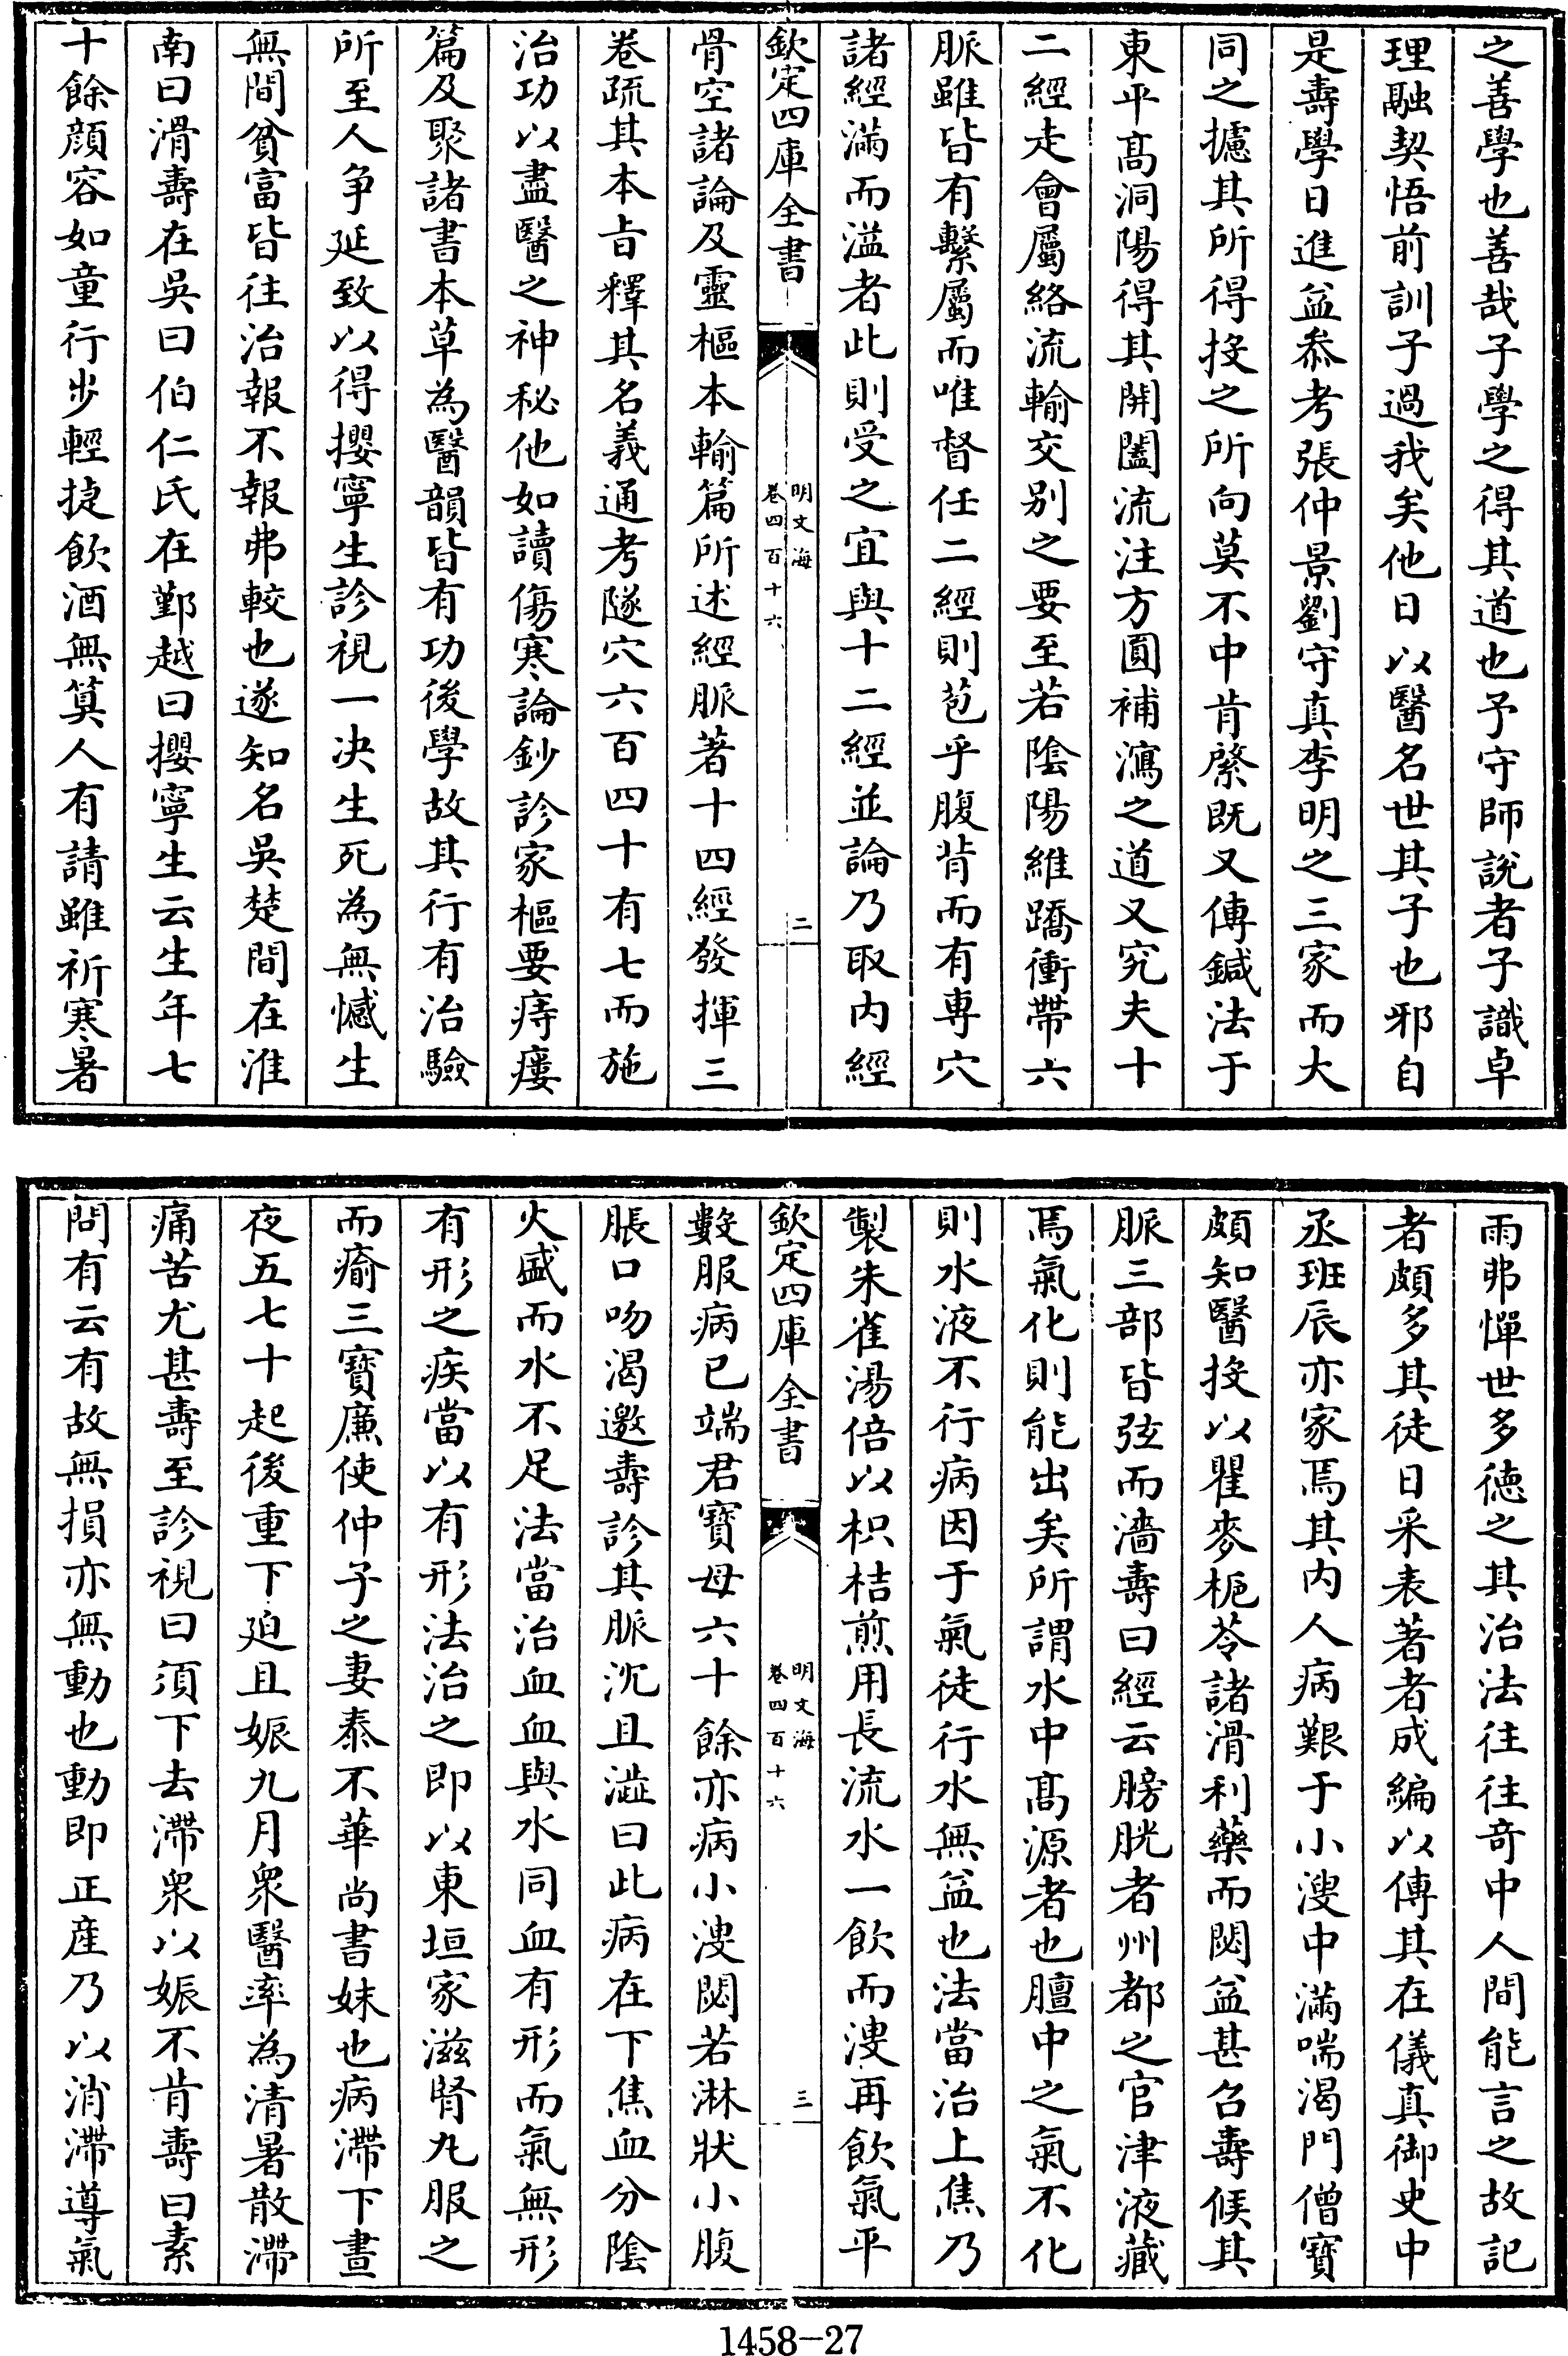 之善學也善哉子學之得其道也予守師說者子識卓
理融契悟前訓子過我矣他日以醫名世其子也邪自
是壽學日進益叅考張仲景劉守真李明之三家而大
同之據其所得投之所向莫不中肯綮既又傳鍼法于
東平髙洞陽得其開闔流注方圓補瀉之道又究夫十
二經走會屬絡流輸交别之要至若陰陽維蹻衝帶六
脈雖皆有繫屬而唯督任二經則苞乎腹背而有專穴
諸經滿而溢者此則受之宜與十二經並論乃取内經
欽定四庫全書
明文海
卷四百十六
二
骨空諸論及靈樞本輸篇所述經脈著十四經發揮三
卷疏其本㫖釋其名義通考隧穴六百四十有七而施
治功以盡醫之神秘他如讀傷寒論鈔診家樞要痔瘻
篇及聚諸書本草為醫韻皆有功後學故其行有治驗
所至人争延致以得攖寧生診視一決生死為無憾生
無間貧富皆往治報不報弗較也遂知名吳楚間在淮
南曰滑壽在吳曰伯仁氏在鄞越曰攖寧生云生年七
十餘顔容如童行步輕捷飲酒無算人有請雖祈寒暑
雨弗憚世多徳之其治法往往竒中人間能言之故記
者頗多其徒日采表著者成編以傳其在儀真御史中
丞班辰亦家焉其内人病艱于小溲中滿喘渴門僧寳
頗知醫投以瞿麥梔苓諸滑利藥而閟益甚召壽候其
脈三部皆弦而濇壽曰經云膀胱者州都之官津液藏
焉氣化則能出矣所謂水中髙源者也膻中之氣不化
則水液不行病因于氣徒行水無益也法當治上焦乃
製朱雀湯倍以枳桔煎用長流水一飲而溲再飲氣平
欽定四庫全書
明文海
卷四百十六
三
數服病已端君寳母六十餘亦病小溲閟若淋狀小腹
脹口吻渴邀壽診其脈沉且澁曰此病在下焦血分陰
火盛而水不足法當治血血與水同血有形而氣無形
有形之疾當以有形法治之即以東垣家滋腎丸服之
而瘉三寳亷使仲子之妻泰不華尚書妹也病滯下晝
夜五七十起後重下迫且娠九月衆醫率為清暑散滯
痛苦尤甚壽至診視曰須下去滯衆以娠不肯壽曰素
問有云有故無損亦無動也動即正産乃以消滯導氣
1458-27